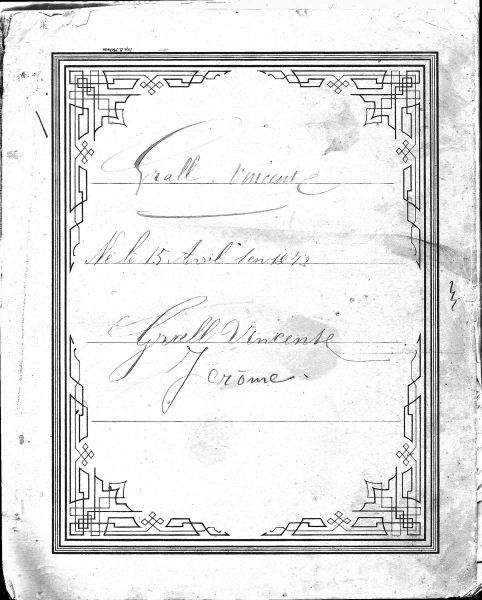 Grall Vincente
Né le 15 Avril 1en 1873
Grall Vincente
Jérôme.